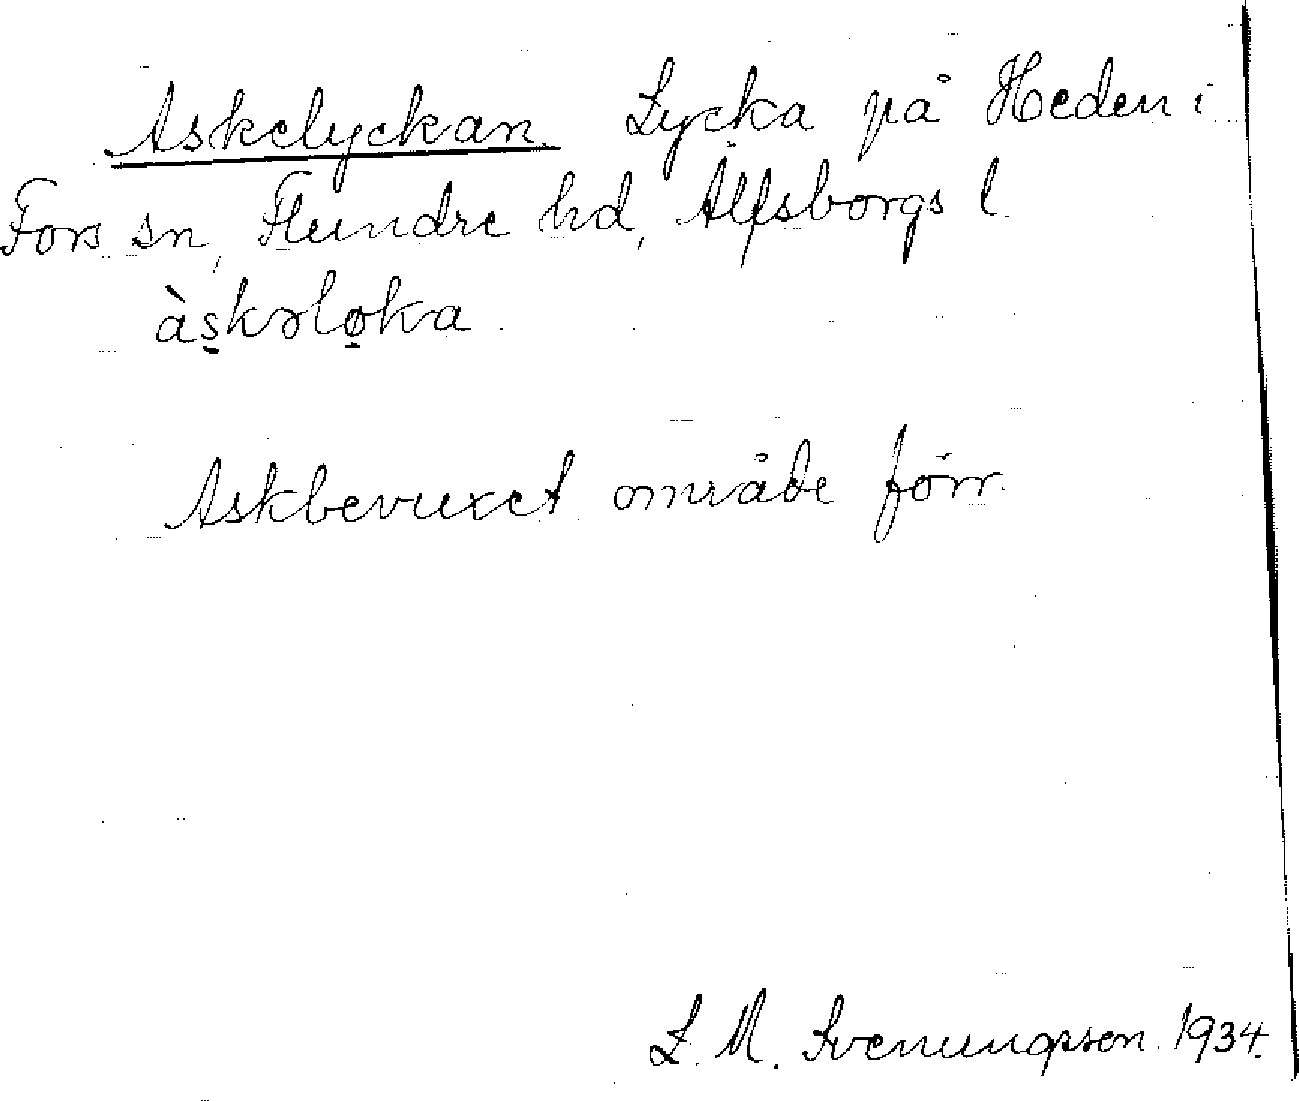 Askelyckan. Lycka på Heden i
Fors sn, Flundre hd, Älfsborgs l.
às̱kəlø̱ka.
Askbevuxet område förr.
L. M. Svenungsson. 1934.